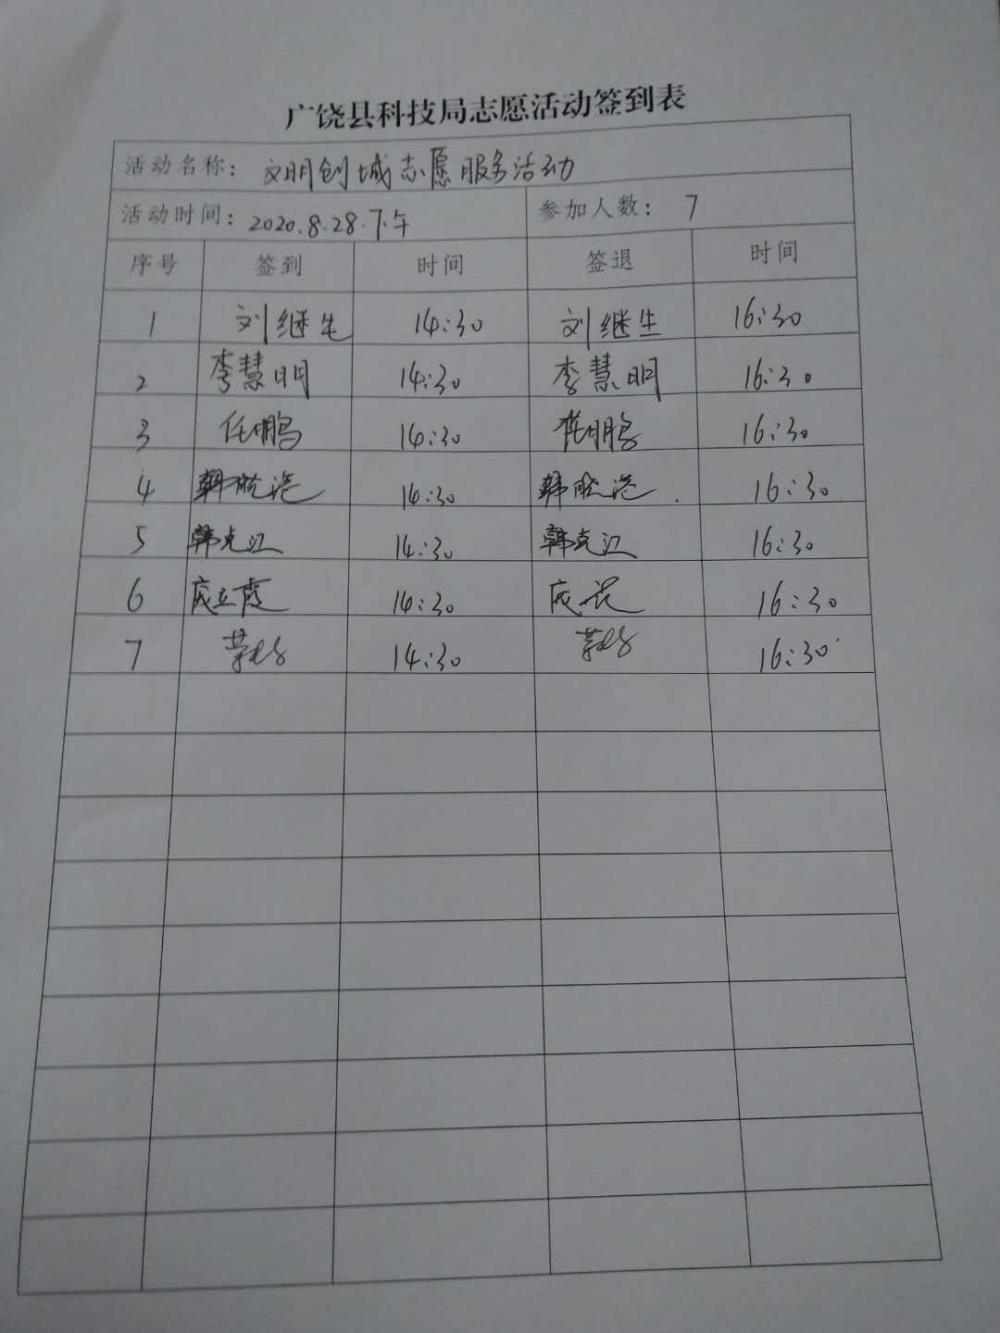 广饶县科技局志愿活动签到表
活动名称: 文明创城志愿服务活动
活动时间: 2020.8.28.下午 参加人数: 7
序号 签到 时间 签退 时间
1 刘继生 14:30 刘继生 16:30
2 李慧明 14:30 李慧明 16:30
3 任鹏 14:30 任鹏 16:30
4 韩晓港 14:30 韩晓港 16:30
5 韩克江 14:30 韩克江 16:30
6 成立霞 14:30 16:30
7 14:30 16:30